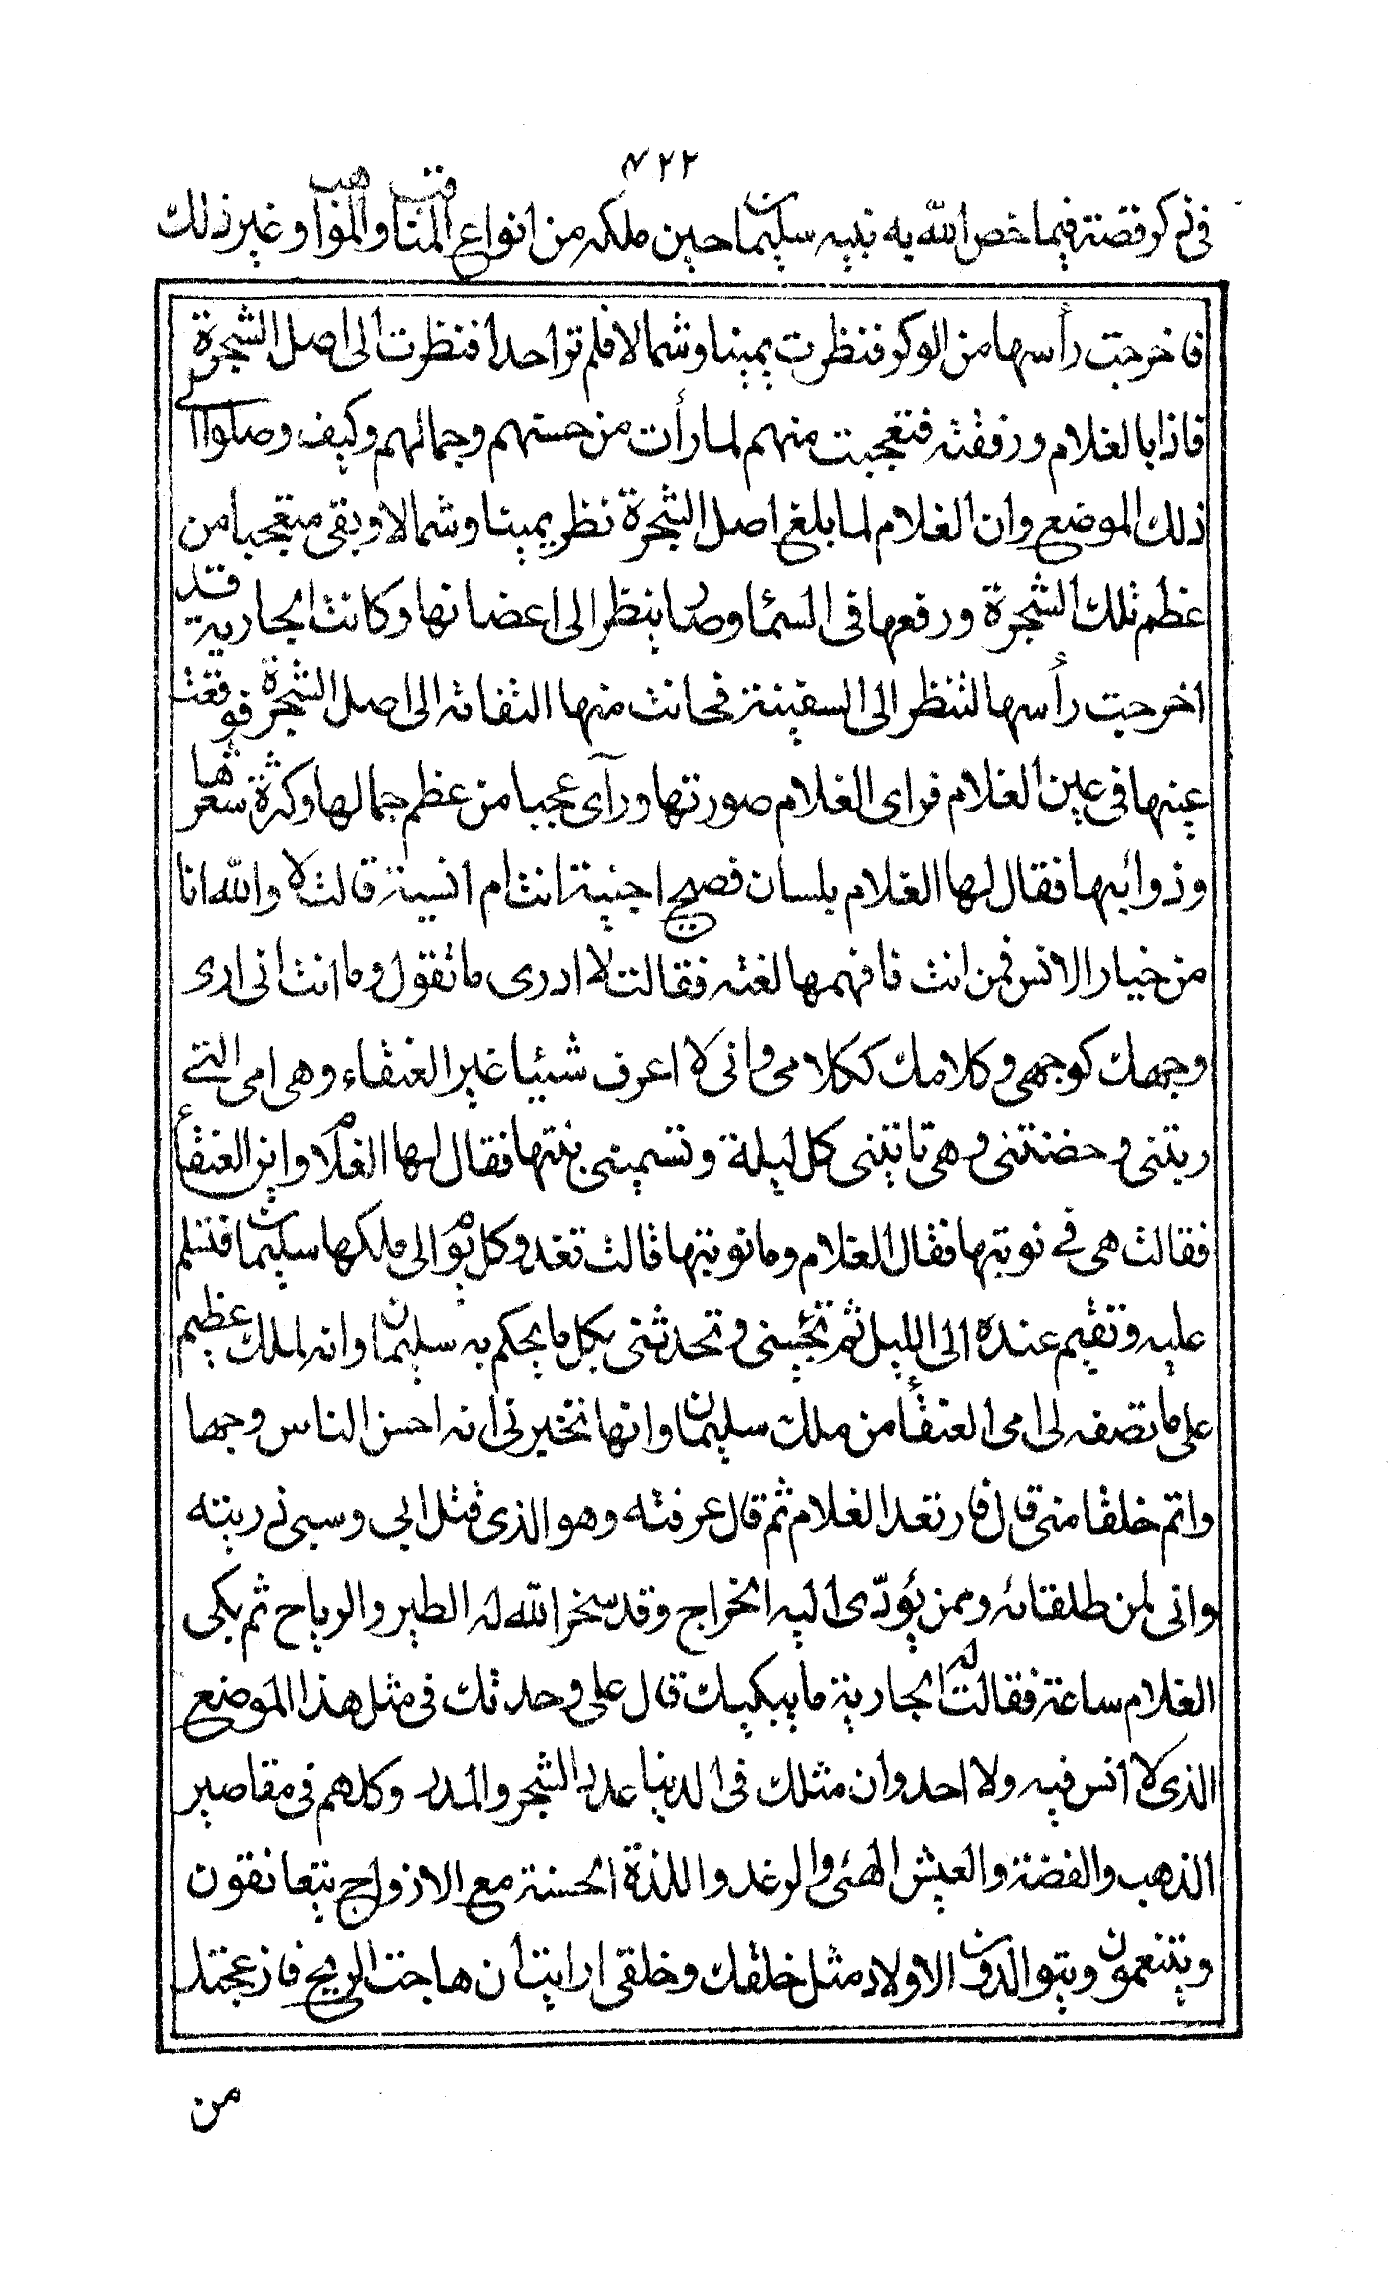 ٧٢٢
في ذكر قصته فيما خص الله به نبيه سليمان حين ملكه من انواع المناقب والمواهب وغير ذلك
فاخرجت رأسها من الوكر فنظرت يمينا وشمالا فلم تر احدا فنظرت الى اصل الشجرة
فاذا بالغلام ورفقته فتعجبت منهم لما رأت من حسنهم وجمالهم وكيف وصلوا الى
ذلك الموضع وان الغلام لما بلغ اصل الشجرة نظر يمينا وشمالا وبقى متعجبا من
عظم تلك الشجرة ورفعها فى السماء وصار ينظر الى اغصانها وكانت الجارية قد
اخرجت رأسها لتنظر الى السفينة فحانت منها التفاتة الى اصل الشجرة فوقعت
عينها فى عين الغلام فراى الغلام صورتها ورآى عجبا من عظم جمالها وكثرة شعرها
وذوائبها فقال لها الغلام بلسان فصيح اجنية انت ام انسية قالت لا والله انا
من خيار الانس فمن انت فافهمها لغته فقالت لا ادرى ما تقول وما انت انى ارى
وجهك كوجهى وكلامك ككلامى وانى لا اعرف شيئا غير العنقاء وهى امى التى
ربتنى وحضنتنى وهى تاتينى كل ليلة وتسمينى بنتها فقال لها الغلام واين العنقاء
فقالت هى فى نوبتها فقال الغلام وما نوبتها قالت تغدو كل يوم الى ملكها سليمان فتسلم
عليه وتقيم عنده الى الليل ثم تجيئنى وتحدثنى بكل ما يحكم به سليمان وانه لملك عظيم
على ما تصفه لى امى العنقاء من ملك سليمان وانها تخبرنى انه احسن الناس وجها
واتم خلقا منى قال فارتعد الغلام ثم قال عرفته وهو الذى قتل ابى وسبى ذريته
وانى لمن طلقائه وممن يؤدّى اليه الخراج وقد سخر الله له الطير والرياح ثم بكى
الغلام ساعة فقالت له الجارية ما يبكيك قال على وحدتك فى مثل هذا الموضع
الذى لا انس فيه ولا احد وان مثلك فى الدنيا عدد الشجر والمدر وكلهم فى مقاصير
الذهب والفضة والعيش الهنى والرغد واللذة الحسنة مع الازواج يتعانقون
ويتنعمون ويتوالدون الاولاد مثل خلقك وخلقى ارايت ان هاجت الريح فازعجتك
من